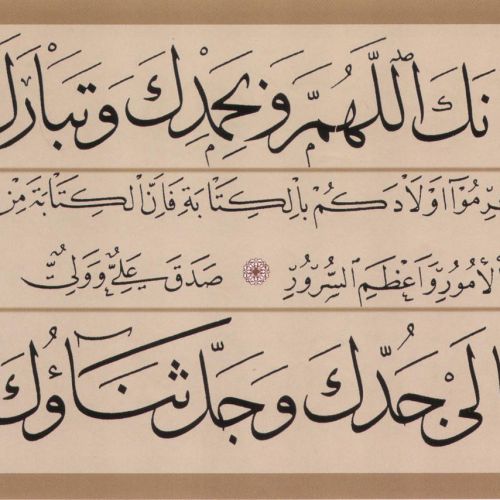 نَكَ اللّٰهُمَّ وَبِحَمْدِكَ وَتَبَارَكَ
أَوْلَادَكُمْ بِالْكِتَابَةِ فَإِنَّ الْكِتَابَةَ مِنْ
الْأُمُورِ وَأَعْظَمِ السُّرُورِ صَدَقَ عَلِيٌّ وَوَلِيٌّ
لَى جَدُّكَ وَجَلَّ ثَنَاؤُكَ